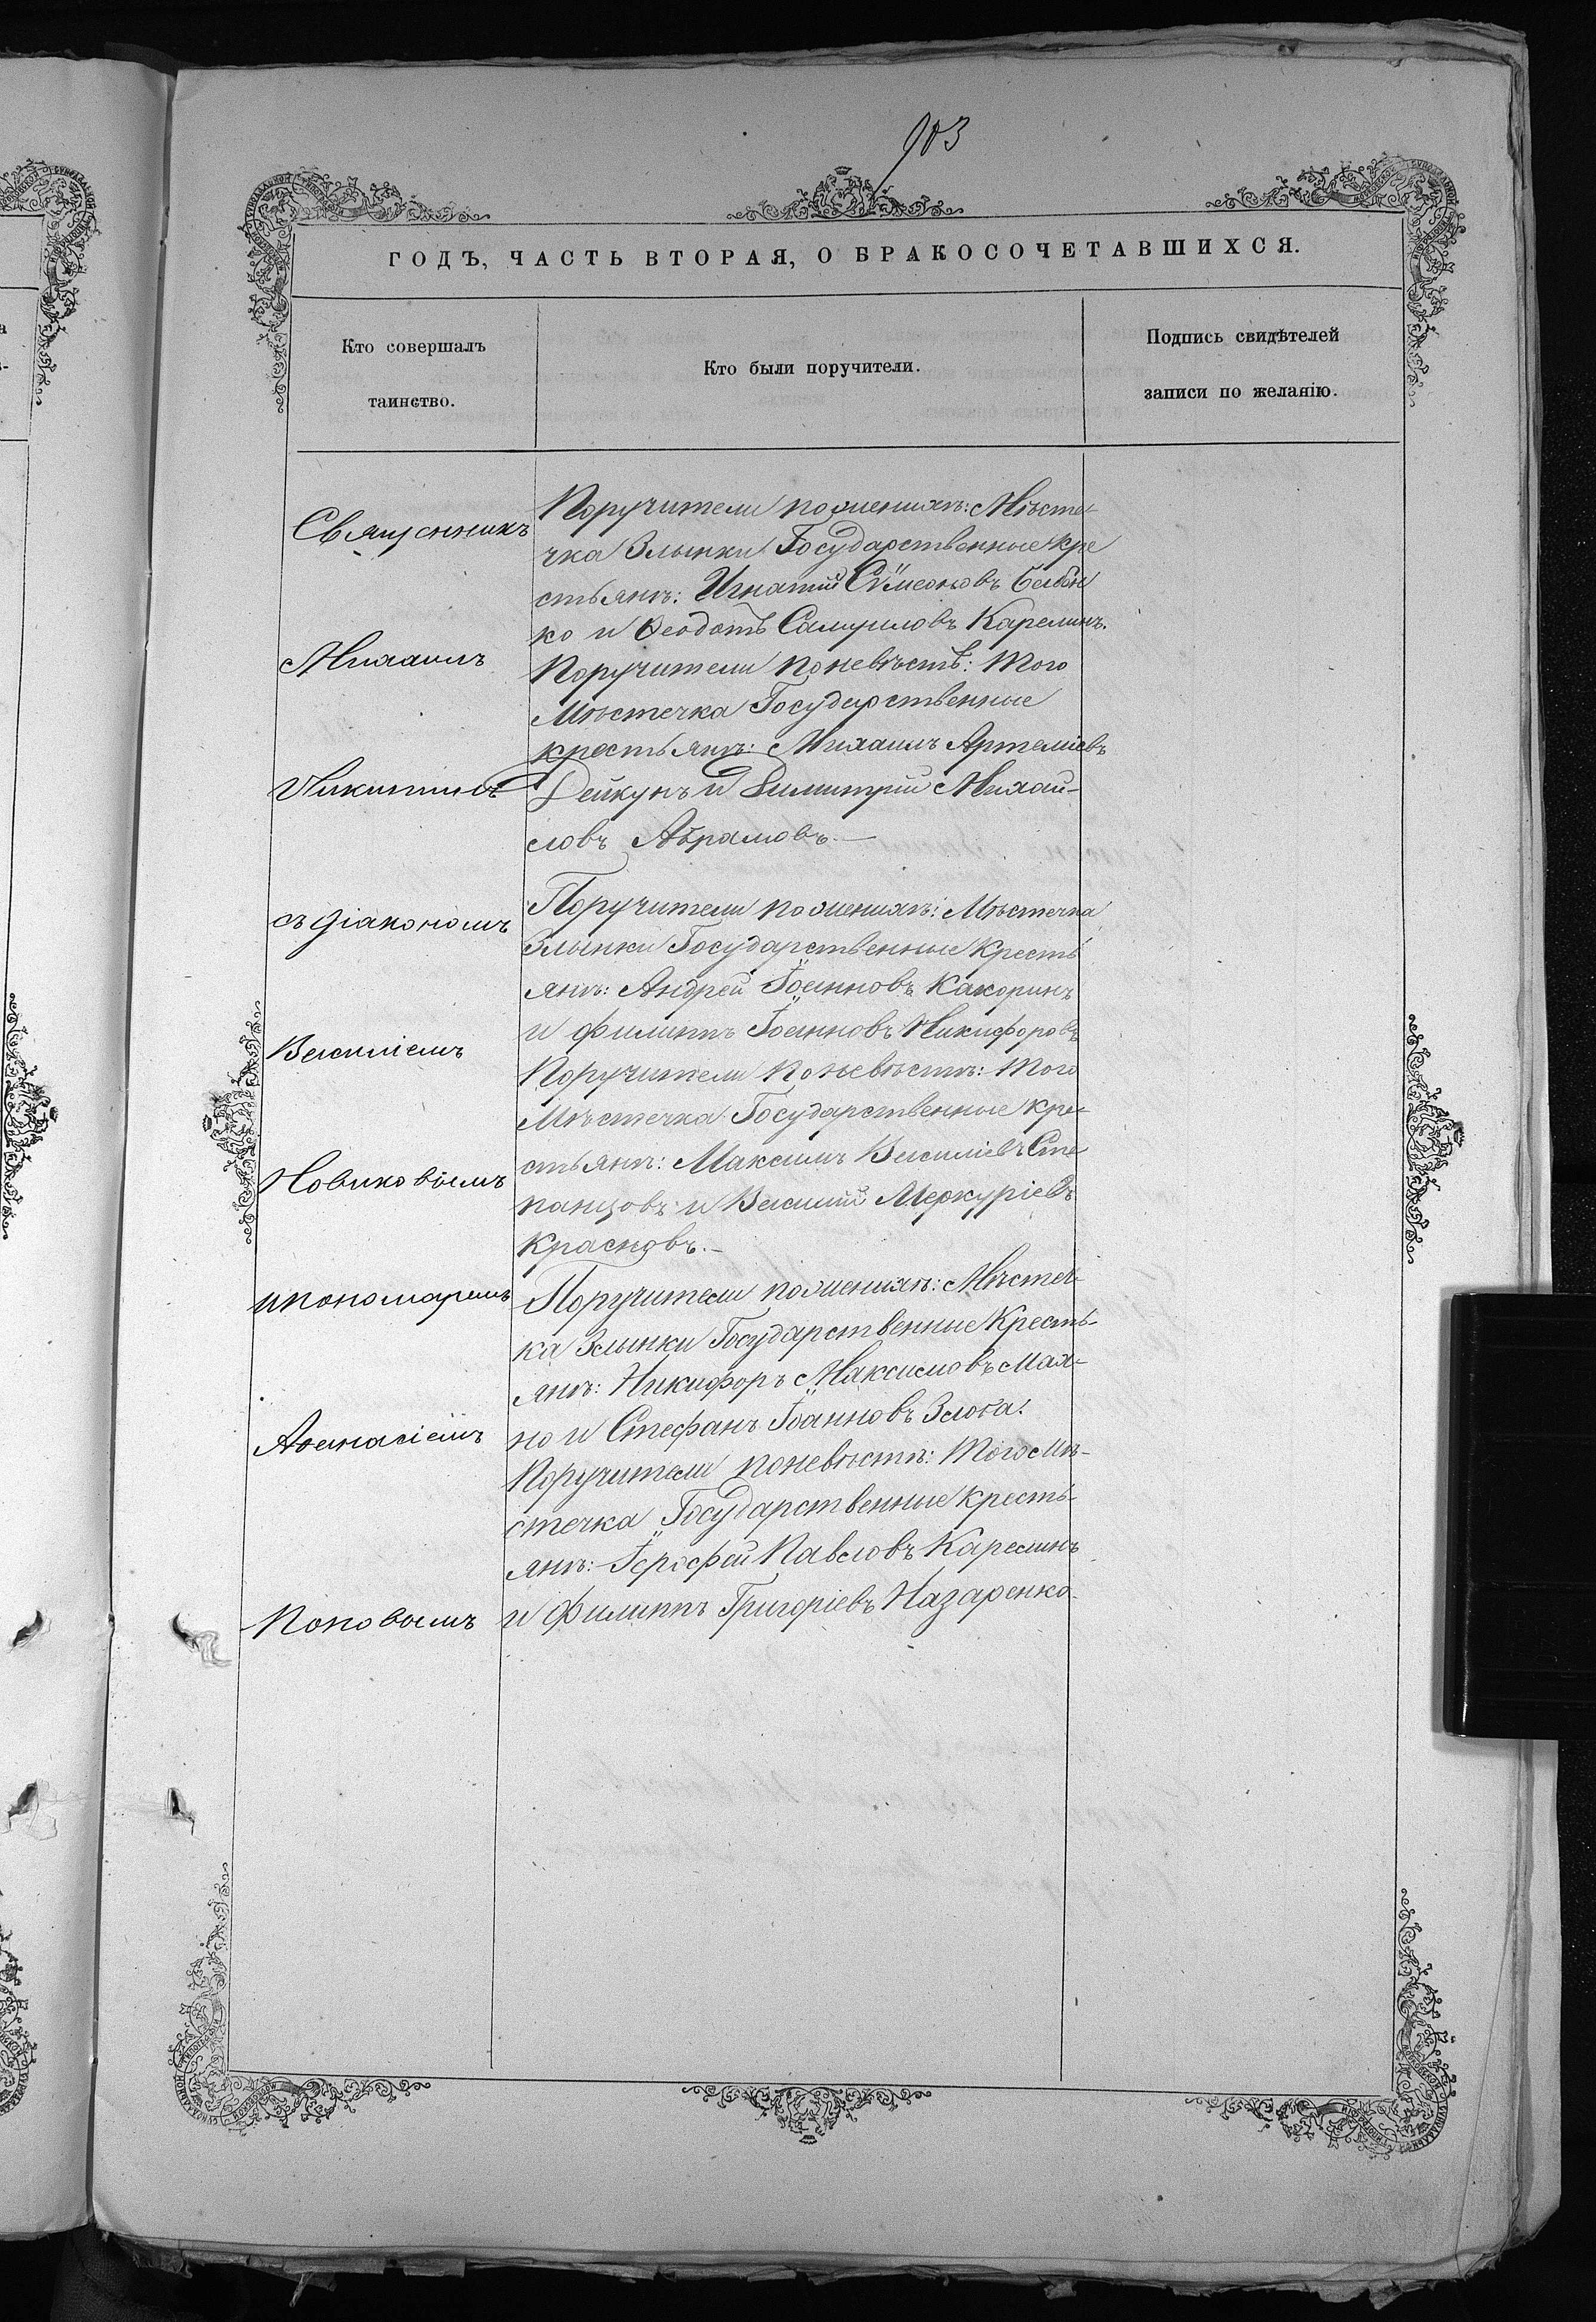 903
ГОДЪ, ЧАСТЬ ВТОРАЯ, О БРАКОСОЧЕТАВШИХСЯ.
Кто совершалъ
таинство.
Кто были поручители.
Подпись свидѣтелей
записи по желанію.
Священникъ
Михаилъ
Никитинъ
съ Діакономъ
Василіемъ
Новиковымъ
и пономаремъ
Аѳанасіемъ
Поповымъ
Поручители по женихѣ: Мѣсте-
чка Злынки Государственные кре
стьянѣ: Игнатій Сѵмеоновъ
ко и Ѳеодотъ Самуиловъ Карелинъ.
Поручители по невѣстѣ: Того
Мѣстечка Государственные
крестьянѣ: Михаилъ Артеміевъ
Дейкунъ и Димитрій Михаи-
ловъ Абрамовъ.—
Поручители по женихѣ: Мѣстечка
Злынки Государственные Кресть
янѣ: Андрей Іоанновъ Какоринъ
и Филиппъ Іоанновъ Никифоровъ
Поручители по невѣстѣ: Того
Мѣстечка Государственные кре-
стьянѣ: Максимъ Василіевъ Сте
панцовъ и Василій Меркуріевъ
Красновъ.—
Поручители по женихѣ: Мѣстеч-
ка Злынки Государственные Кресть-
янѣ: Никифоръ Максимовъ Мах-
но и Стефанъ Іоанновъ
Поручители по невѣстѣ: Того Мѣ-
стечка Государственные кресть-
янѣ: Іерофей Павловъ Карелинъ
и Филиппъ Григоріевъ Назаренко.